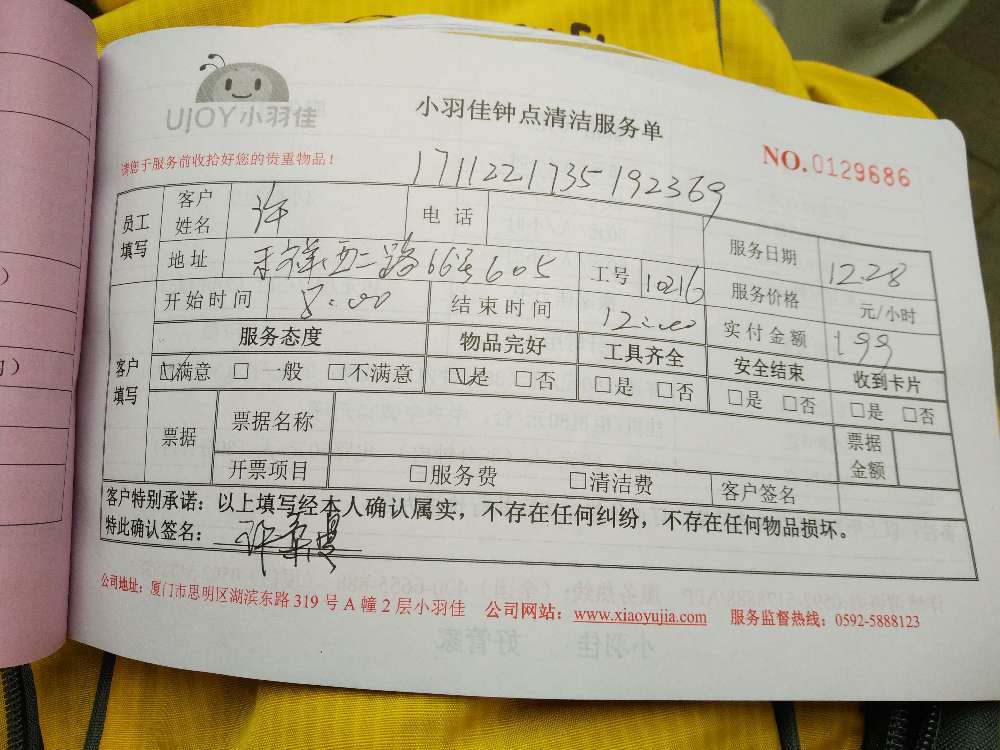 UJOY小羽佳
小羽佳钟点清洁服务单
请您于服务前收拾好您的贵重物品！
NO.0129686
1711221735192369
员工填写 客户姓名 许 电话 服务日期 12.28
地址 西二路66号605 工号 10216 服务价格 元/小时
客户填写 开始时间 8:00 结束时间 12:00 实付金额 199
服务态度 物品完好 工具齐全 安全结束 收到卡片
☑满意 □一般 □不满意 ☑是 □否 □是 □否 □是 □否 □是 □否
票据 票据名称 票据金额
开票项目 □服务费 □清洁费 客户签名
客户特别承诺：以上填写经本人确认属实，不存在任何纠纷，不存在任何物品损坏。
特此确认签名：
公司地址：厦门市思明区湖滨东路319号A幢2层小羽佳 公司网站：www.xiaoyujia.com 服务监督热线：0592-5888123